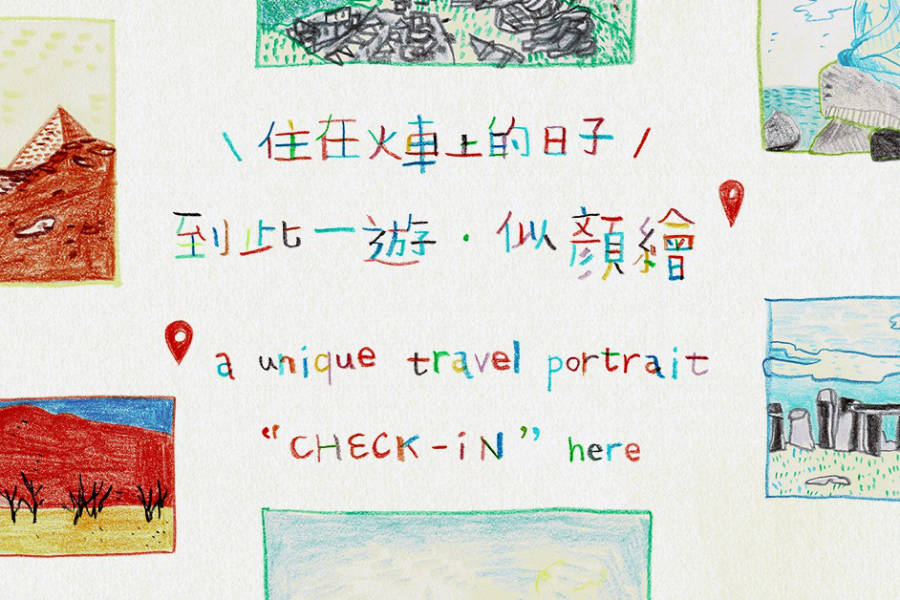 \ 住在火車上的日子 /
到此一遊・似顏繪
a unique travel portrait
“CHECK-iN” here